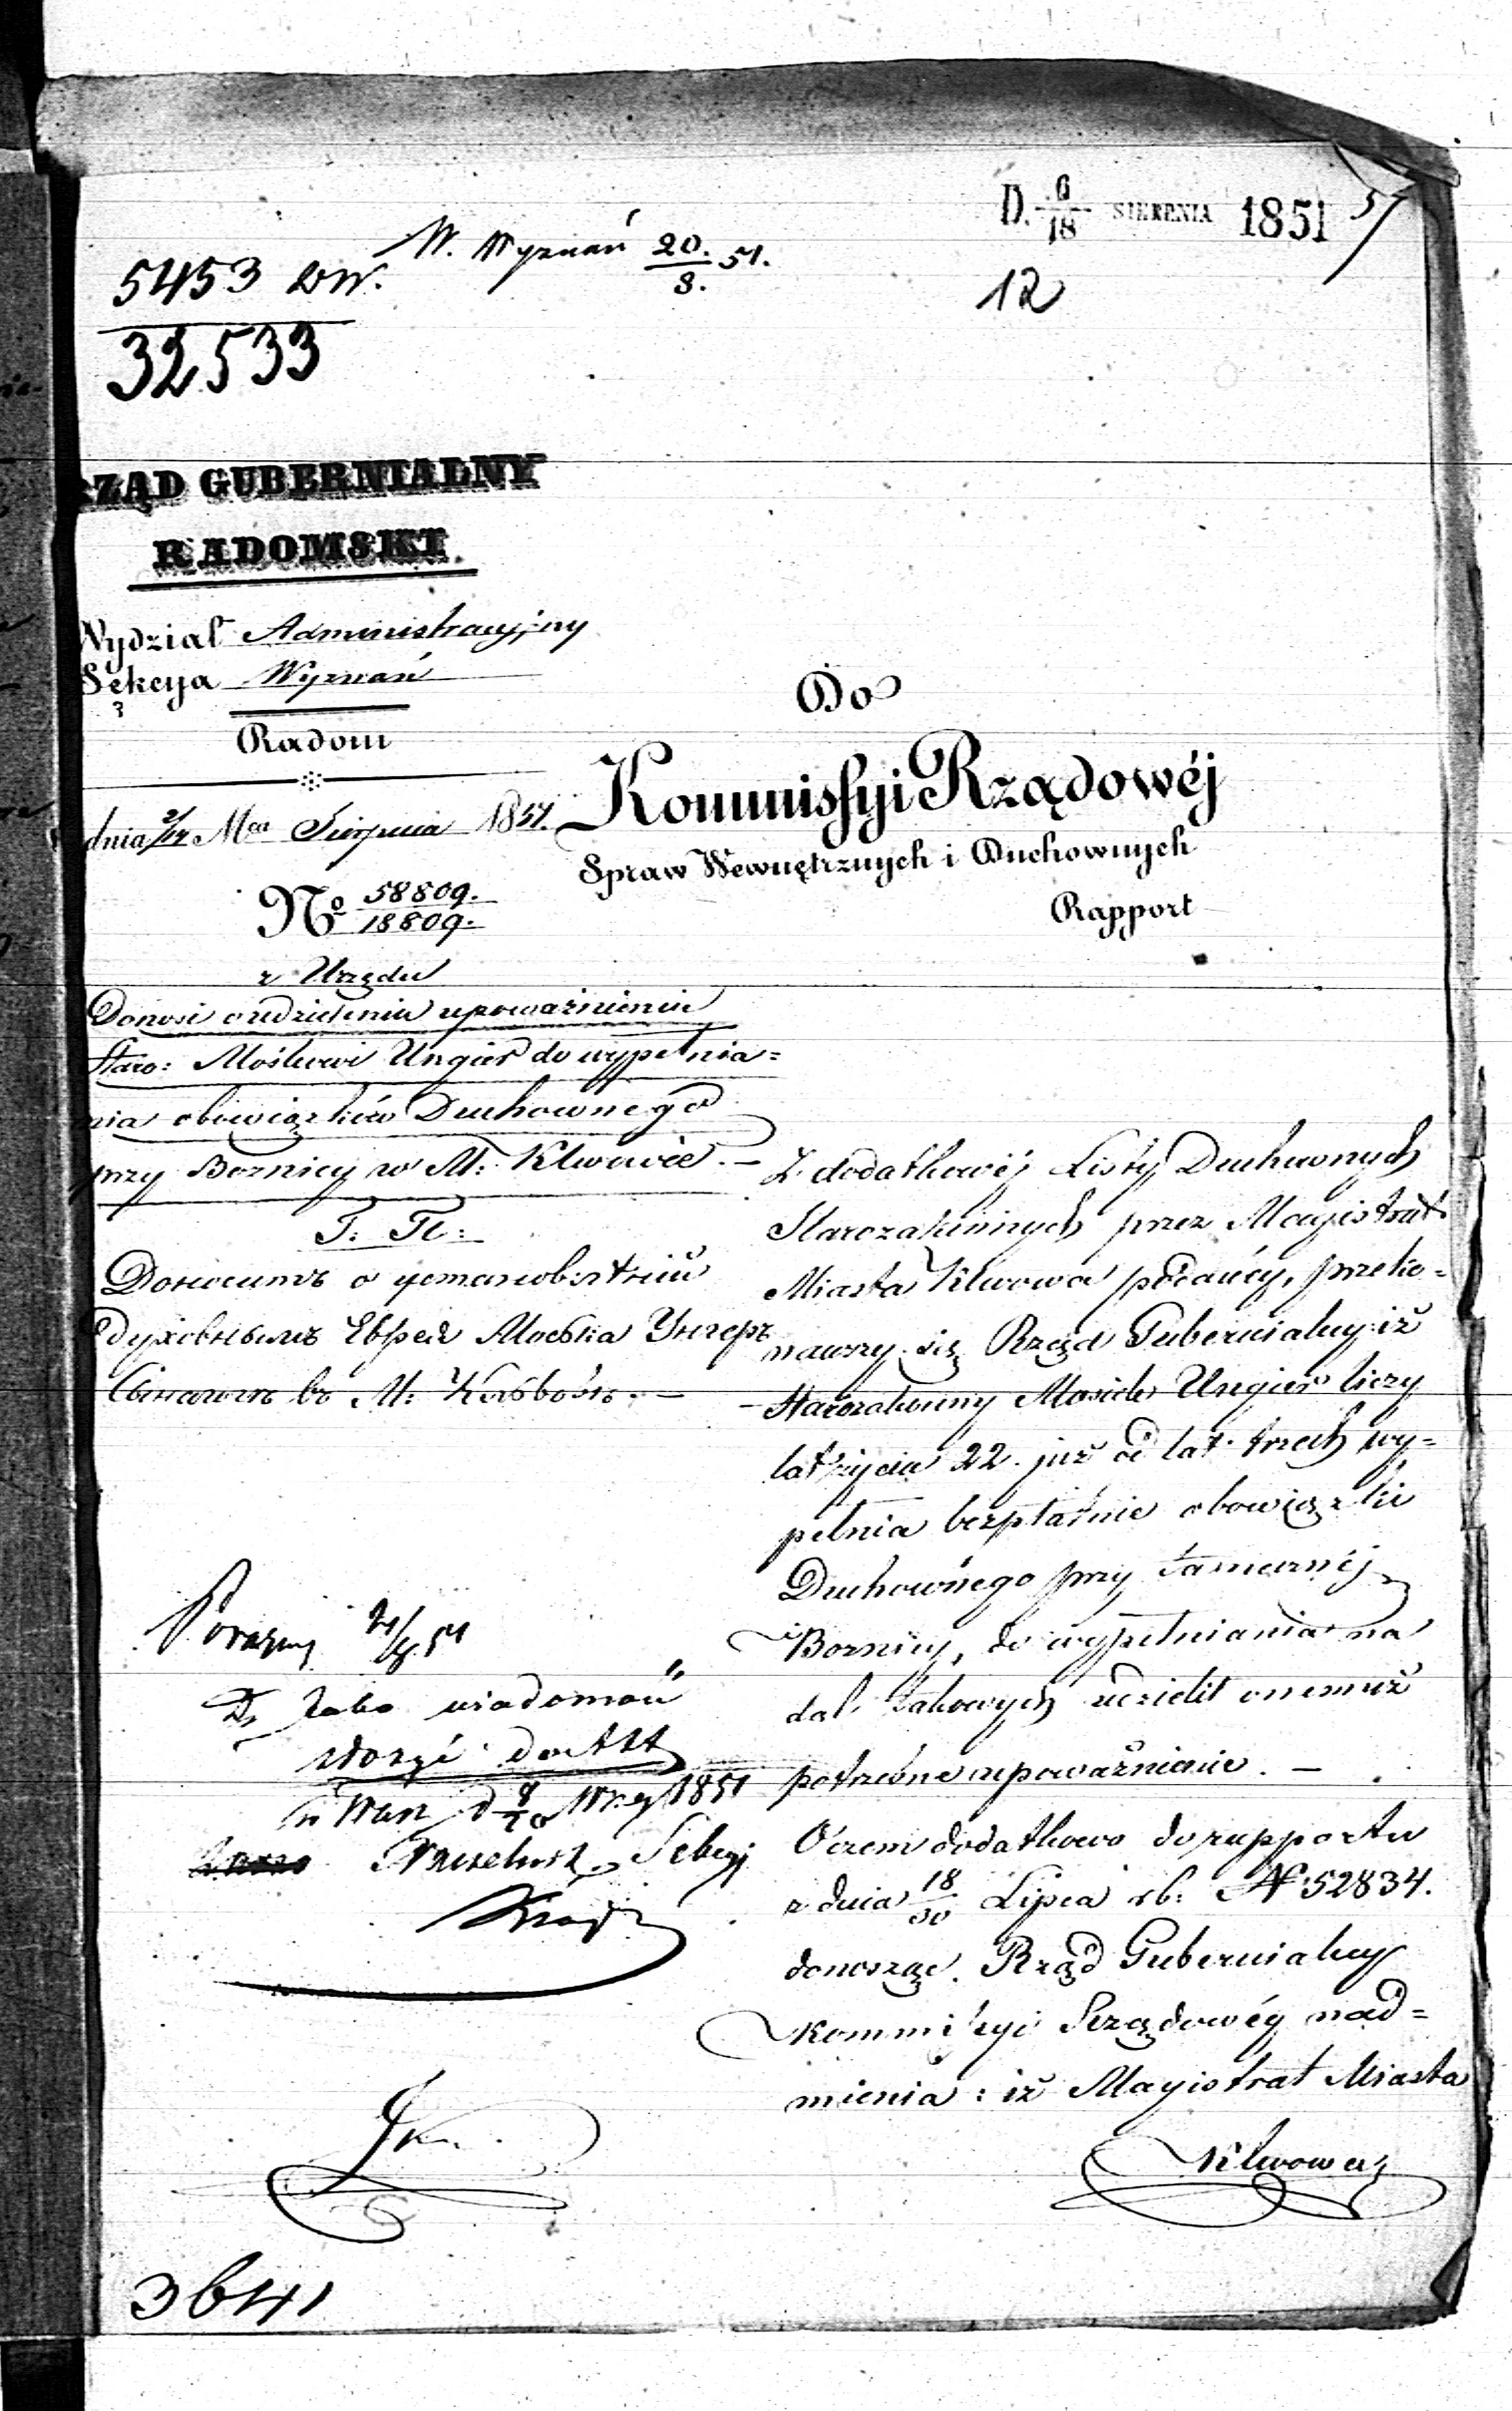 D. 6/18 SIERPNIA 1851
57
W. Wyznań 20./8. 51.
12
5453 DW.
32533
RZĄD GUBERNIALNY
RADOMSKI.
Wydział Administracyjny
Sekcya Wyznań
Radom
dnia 2/14 Mca Sierpnia 1851.
No 58809./18809.
z Urzędu
Do
Kommissyi Rządowéj
Spraw Wewnętrznych i Duchownych
Rapport
Donosi o udzieleniu upoważnienia
Staro: Mośkowi Ungier do wypełnia=
nia obowiązków Duchownego
przy Boznicy w M: Klwowie. —
Доноситъ о
духовнымъ Еврея Мошка Унгеръ
въ М:
Z dodatkowéj Listy Duchownych
Starozakonnych przez Magistrat
Miasta Klwowa podanéy, przeko=
nawszy się Rząd Gubernialny iż
Starozakonny Mosiek Ungier liczy
lat życia 22. już od lat trzech wy=
pełnia bezpłatnie obowiązki
Duchownego przy tamecznéj
Boznicy, do wypełniania na
dal takowych udzielił onemuż
potrzebne upoważnienie. —
O czem dodatkowo do rapportu
z dnia 18/30 Lipca rb: N 52834.
donosząc. Rząd Gubernialny
Kommissyi Rządowéy nad=
mienia: iż Magistrat Miasta
Klwowa
Jako wiadomość
złożyć do Akt
1851
3641